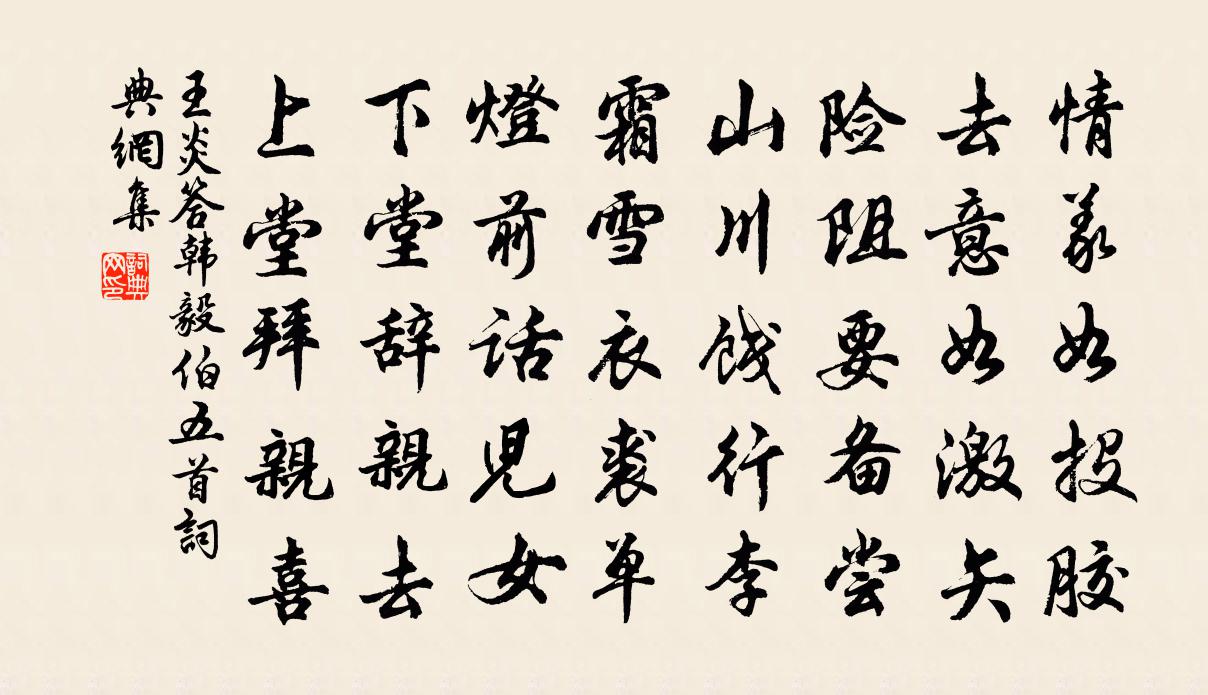 情義如投膠
去意如激矢
险阻要备尝
山川饯行李
霜雪衣裘单
燈前話児女
下堂辞親去
上堂拜親喜
王炎答韩毅伯五首詞
典網集
詞典
网印